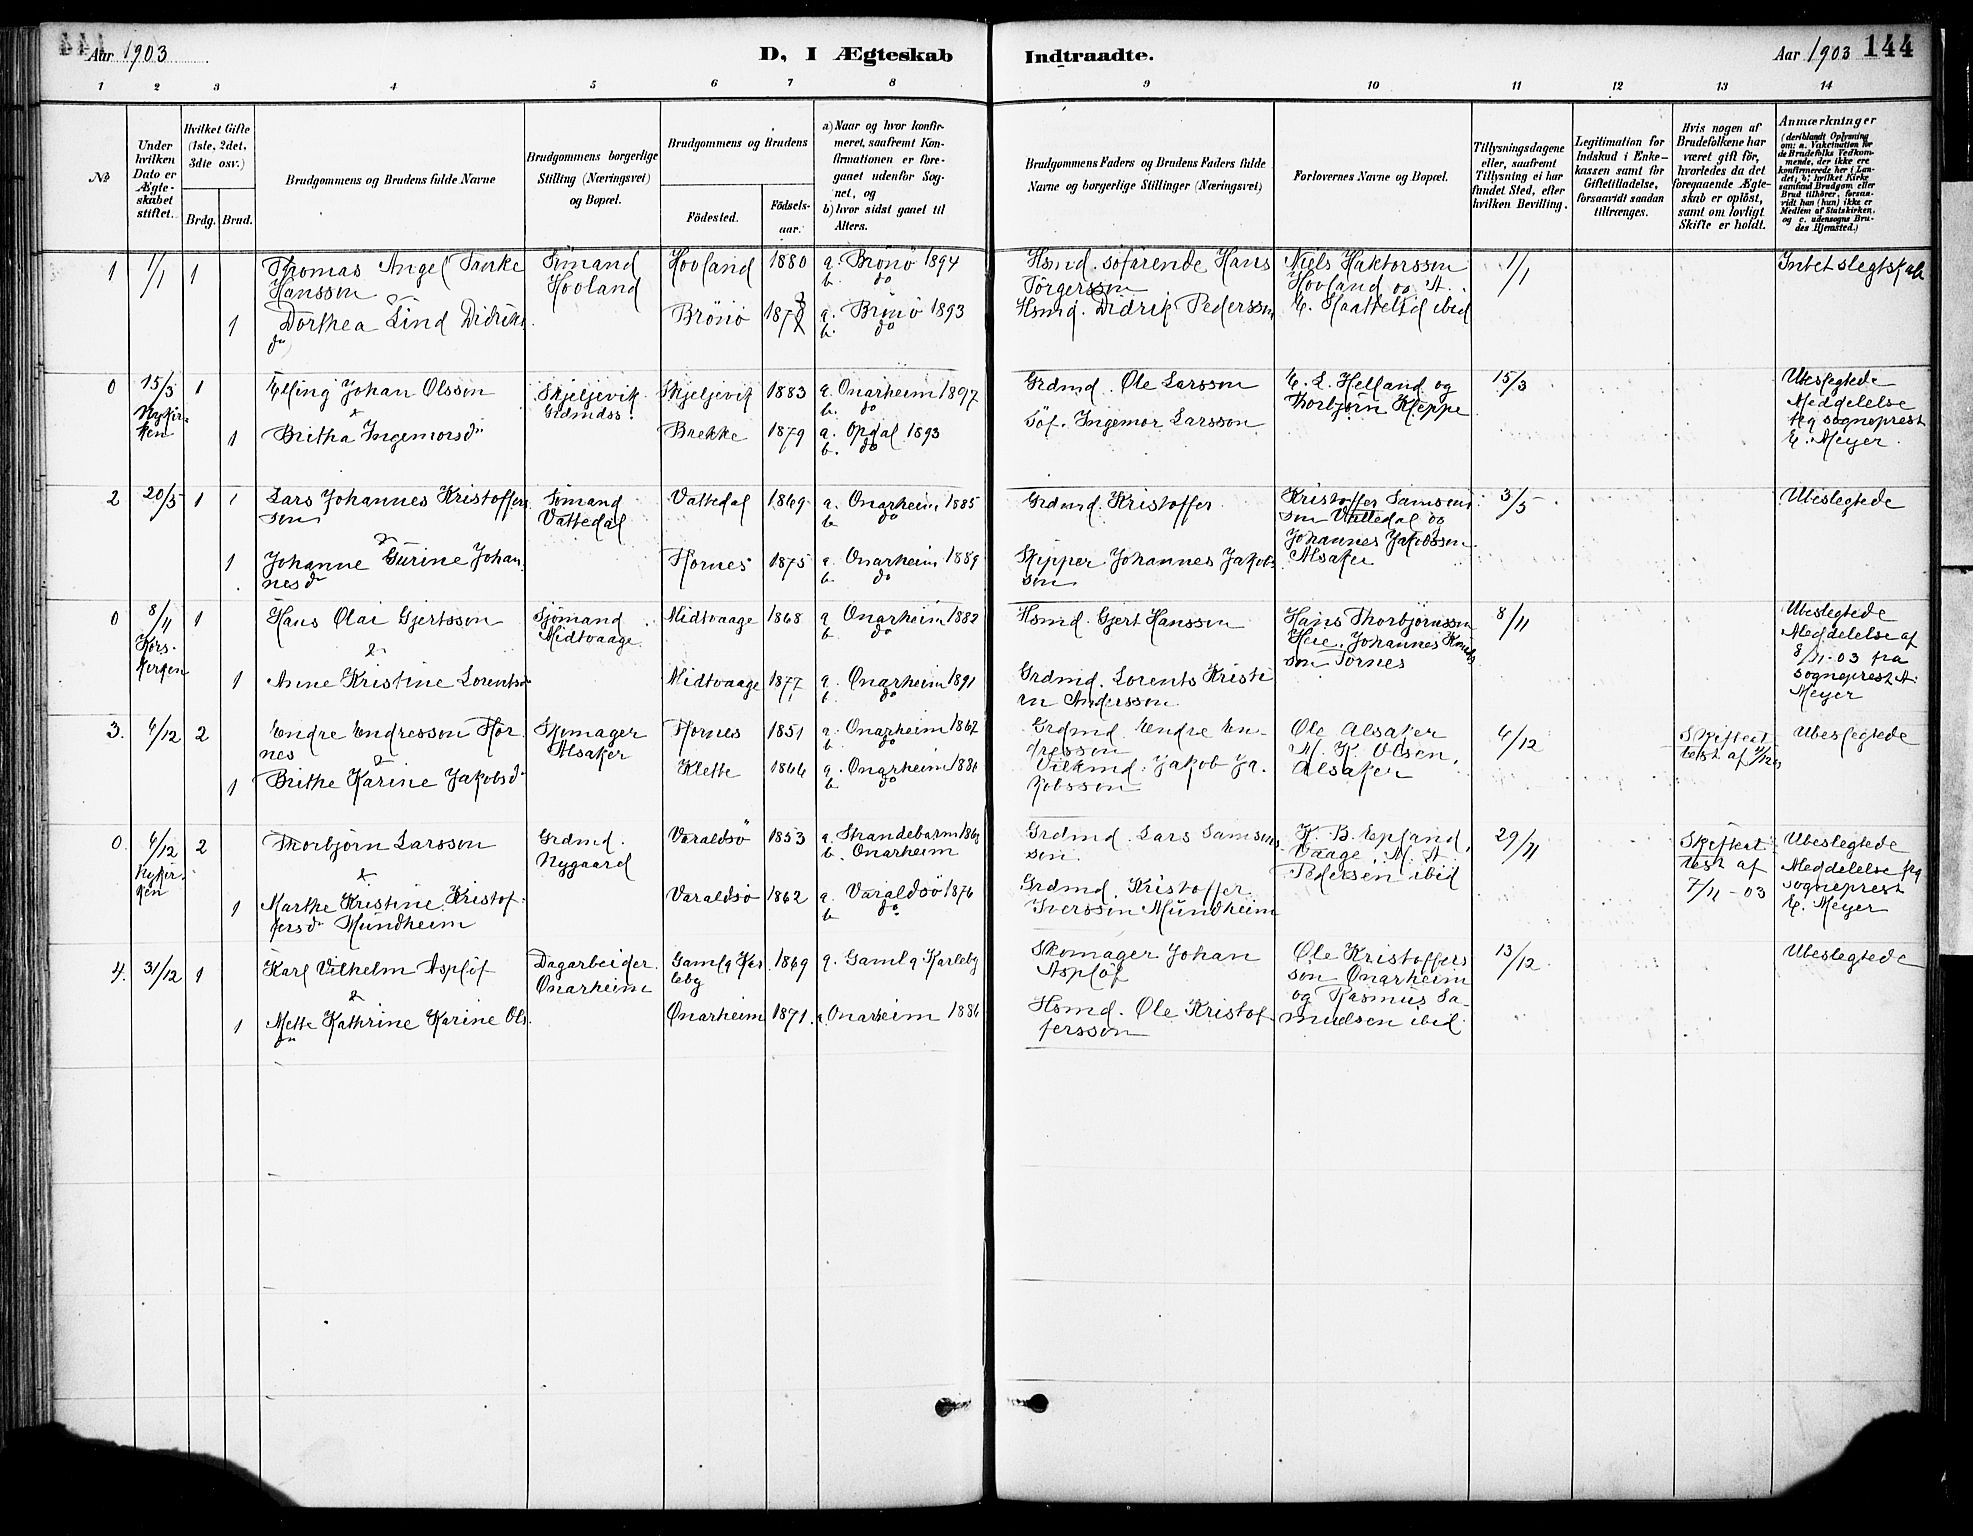 Aar 1903
D, I Ægteskab Indtraadte.
Aar 1903 144
1 2 3 4 5 6 7 8 9 10 11 12 13 14
No
Under hvilken Dato er Ægteskabet stiftet.
Hvilket Gifte (1ste, 2det, 3die osv.)
Brdg. Brud.
Brudgommens og Brudens fulde Navne
Brudgommens borgerlige Stilling (Næringsvei) og Bopæl.
Brudgommens og Brudens
Fødested.
Fødsels-aar.
a) Naar og hvor konfirmeret, saafremt Konfirmationen er foregaaet udenfor Sognet, og
b) hvor sidst gaaet til Alters.
Brudgommens Faders og Brudens Faders fulde Navne og borgerlige Stillinger (Næringsvei)
Forlovernes Navne og Bopæl.
Tillysningsdagene eller, saafremt Tillysning ei har fundet Sted, efter hvilken Bevilling.
Legitimation for Indskud i Enkekassen samt for Giftetilladelse, forsaavidt saadan tiltrænges.
Hvis nogen af Brudefolkene har været gift før, hvorledes da det foregaaende Ægteskab er opløst, samt om lovligt Skifte er holdt.
Anmærkninger
(deriblandt Oplysning om: a. Vakcination for de Brudefolks Vedkommende, der ikke ere konfirmerede her i Landet; b. hvilket Kirkesamfund Brudgom eller Brud tilhører, forsaavidt han (hun) ikke er Medlem af Statskirken, og c. udensogns Brudes Hjemsted.)
1 1/1 1 Thomas Angel Hansson
Sømand Hovland
Hovland 1880 a. Brönö 1894 b. do
Hsmd. söfarende Hans Törgersson
Niels Haktorsson Hovland og A. E. Haattelid ibid
1/1
Intet slegtskab
1 Dorthea Lind Didriksd
Brönö 1878 a. Brönö 1893 b. do
Hsmd. Didrik Pedersson
0 15/3 Nykirken 1 Elling Johan Olsson
Skjeljevik Grdmdss.
Skjeljevik 1883 a. Onarheim 1897 b. do
Grdmd. Ole Larsson
E. L. Helland og Thorbjørn Kleppe
15/3
Ubeslegtede Meddelelse fra sogneprest E. Meyer.
& 1 Britha Ingemorsd
Brekke 1879 a. Opdal 1893 b. do
Söf. Ingemor Larsson
2 20/5 1 1 Lars Johannes Kristofferssön
Sømand Vattedal
Vattedal 1869 a. Onarheim 1885 b. do
Grdmd. Kristoffer
Kristoffer Samsonson Vattedal og Johannes Jakobsson Alsaker
3/5
Ubeslegtede
& 1 Johanne Gurine Johannesd
Hornes 1875 a. Onarheim 1889 b. do
Skipper Johannes Jakobsson
0 8/11 Korskirken 1 Hans Olai Gjertsson
Sjömand Midtvaage
Midtvaage 1868 a. Onarheim 1882 b. do
Hsmd. Gjert Hansson
Hans Thorbjörnsson Heie, Johannes Knudsson Tornes
8/11
Ubeslegtede Meddelelse af 8/11-03 fra sogneprest A. Meyer
& 1 Anne Kristine Lorentsd
Midtvaage 1877 a. Onarheim 1891 b. do
Grdmd. Lorents Kristian Andersson
3. 6/12 2 Endre Endresson Hornes
Skomager Alsaker
Hornes 1851 a. Onarheim 1867 b. do
Grdmd. Endre Endresson
Ole Alsaker M. K. Olsen, Alsaker
6/12
Skifteattest af
Ubeslegtede
& 1 Brithe Karine Jakobsd
Klette 1866 a. Onarheim 1881 b. do
Vilkmd. Jakob Jakobsson
0. 6/12 Nykirken 2 Thorbjörn Larsson
Grdmd. Nygaard
Varaldsö 1853 a. Strandebarm 1868 b. Onarheim
Grdmd. Lars Samsonsson.
K. B. Epland, Vaage, M. A. Pedersen ibid
29/11
Skifteattest af 7/11-03
Ubeslegtede Meddelelse fra sogneprest E. Meyer
& 1 Marthe Kristine Kristoffersd Mundheim
Varaldsö 1862 a. Varaldsö 1876 b. do
Grdmd. Kristoffer Iversson Mundheim
4. 31/12 1 Karl Vilhelm Asplöf
Dagarbeider Onarheim
Gamla Karleby 1869 a. Gamla Karleby
Skomager Johan Asplöf
Ole Kristoffersson Onarheim og Rasmus Samuelsen ibid
13/12
Ubeslegtede
& 1 Mette Kathrine Karine Olsd
Onarheim 1871. a. Onarheim 1886
Hsmd. Ole Kristoffersson